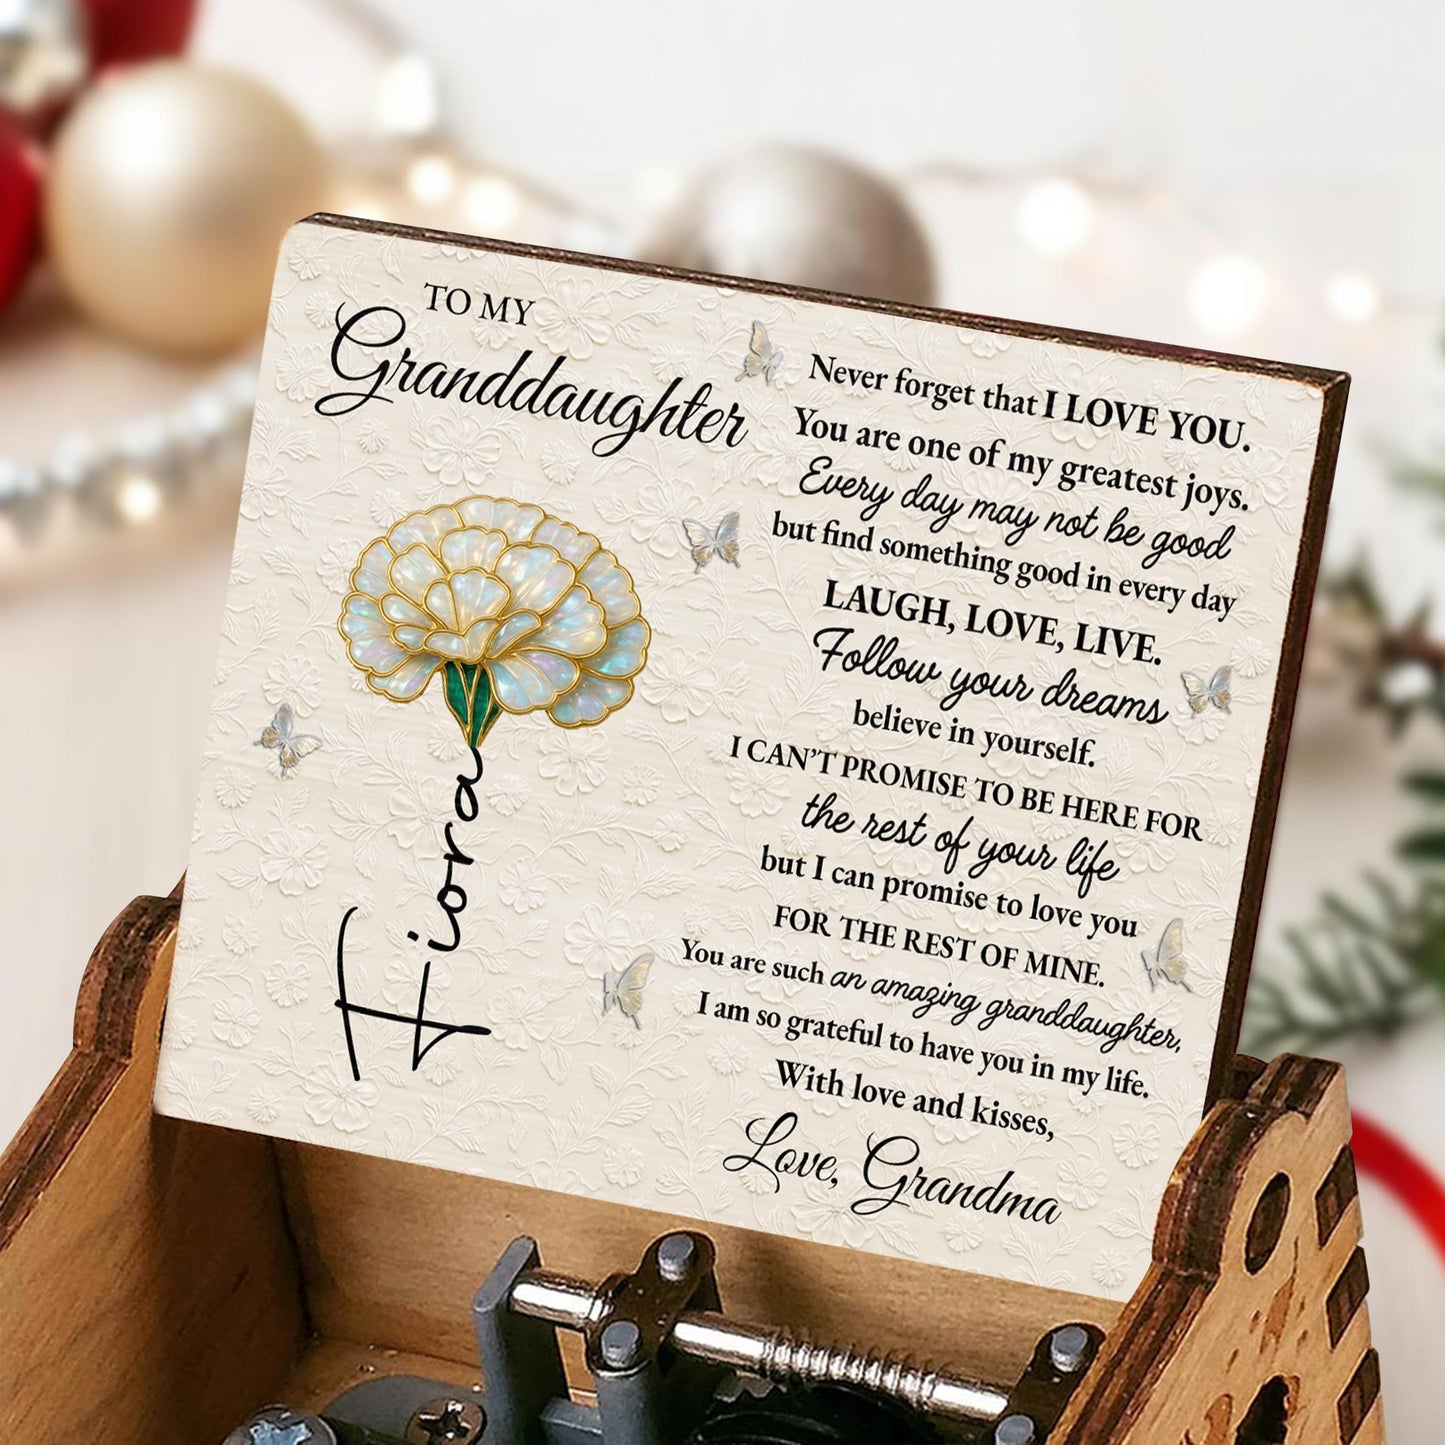 TO MY
Granddaughter
Fiora
Never forget that I LOVE YOU.
You are one of my greatest joys.
Every day may not be good
but find something good in every day
LAUGH, LOVE, LIVE.
Follow your dreams
believe in yourself.
I CAN'T PROMISE TO BE HERE FOR
the rest of your life
but I can promise to love you
FOR THE REST OF MINE.
You are such an amazing granddaughter,
I am so grateful to have you in my life.
With love and kisses,
Love, Grandma